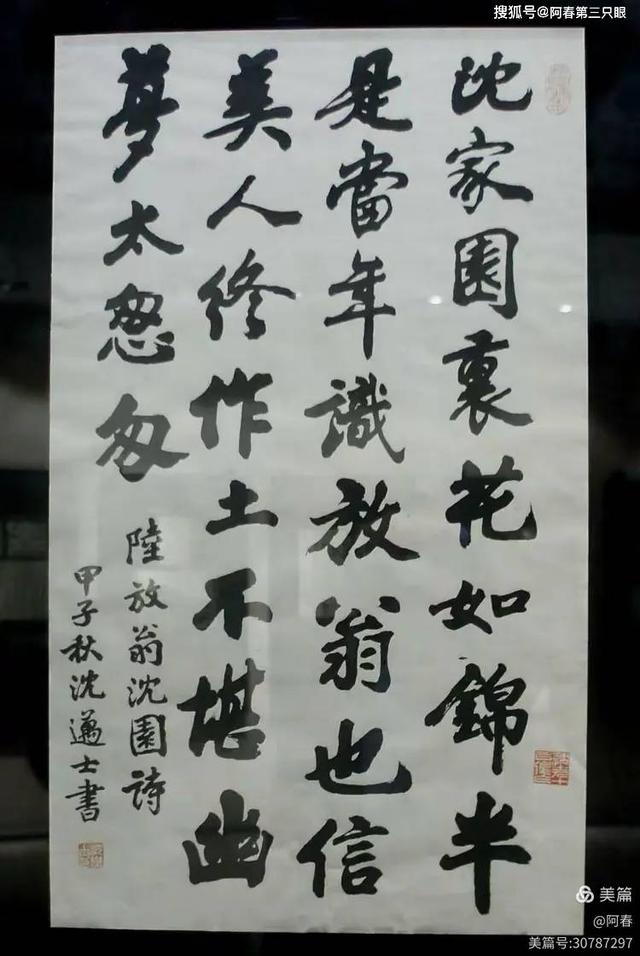 搜狐号@阿春第三只眼
沈家園裏花如錦半
是當年識放翁也信
美人終作土不堪幽
夢太怱匆
陸放翁沈園詩
甲子秋沈邁士書
美篇
@阿春
美篇号:30787297